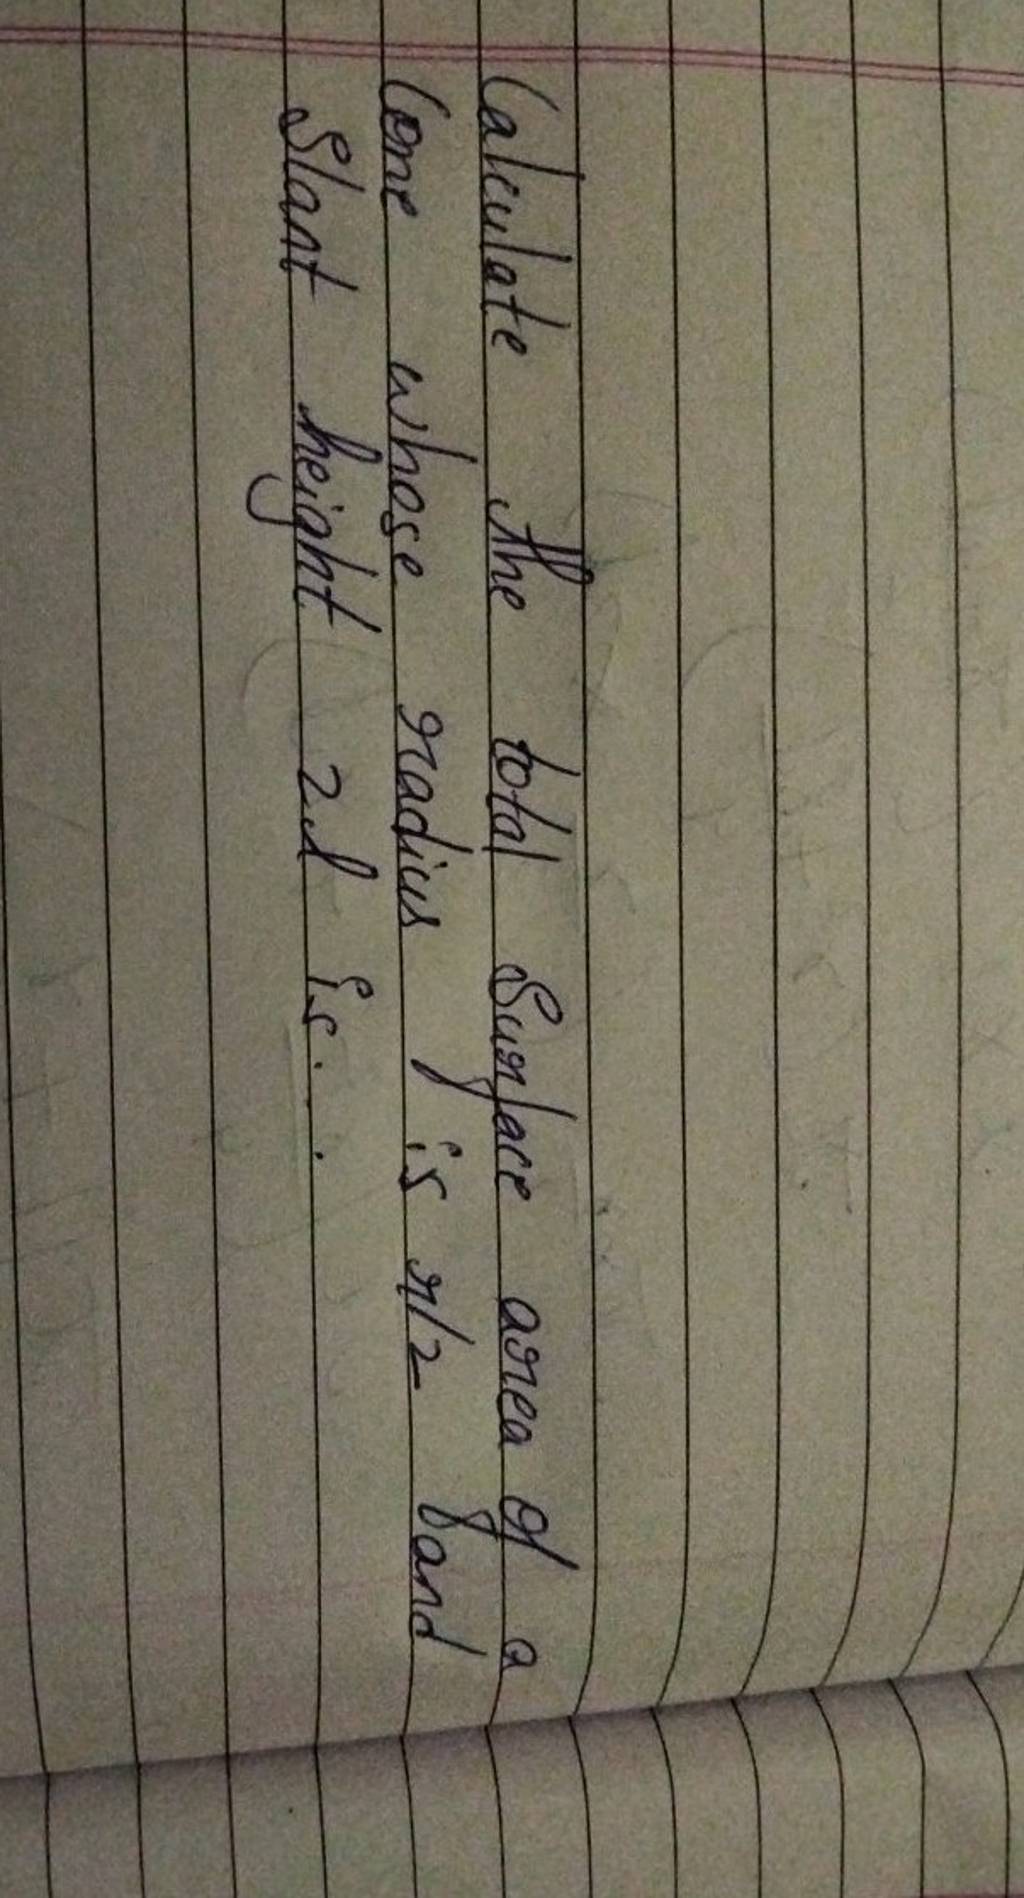 Calculate the total Surface area of a
Cone whose radius is r/2 and
Slant height 2l is....